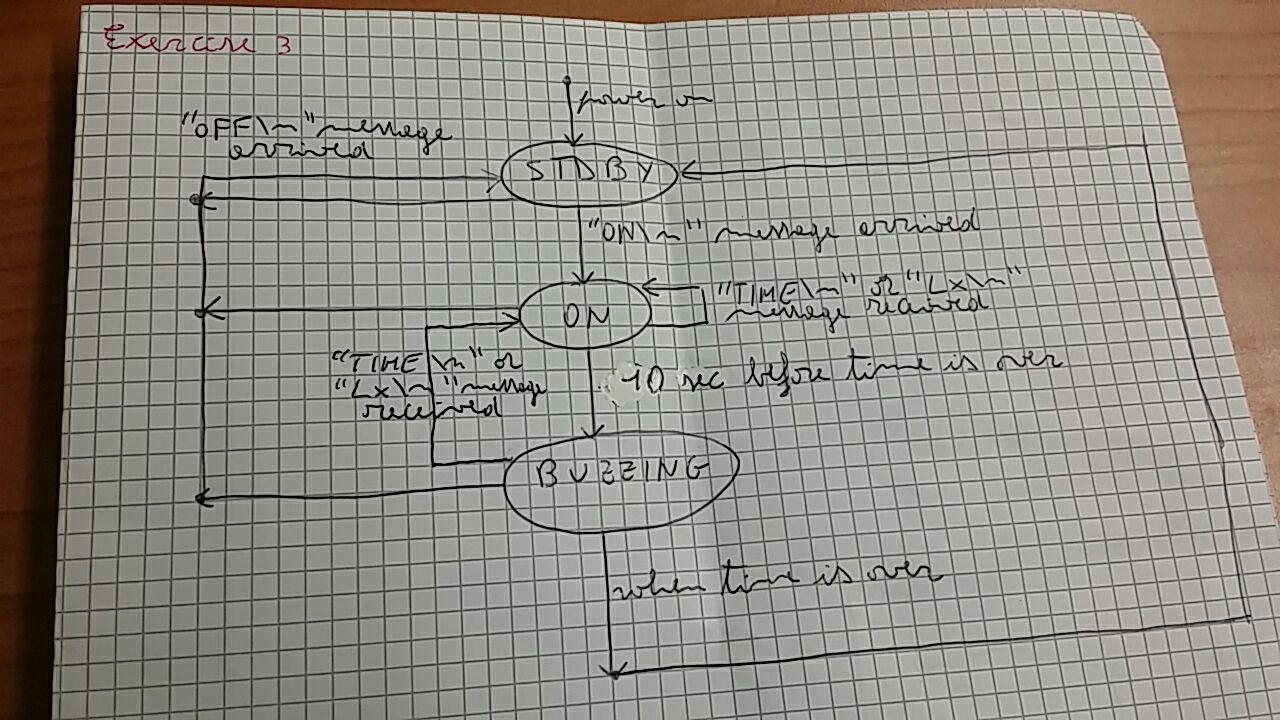 Exercise 3
power on
"OFF\n" message
arrived
STDBY
"ON\n" message arrived
"TIME\n" or "Lx\n"
message received
ON
"TIME\n" or
"Lx\n" message
received
10 sec before time is over
BUZZING
when time is over